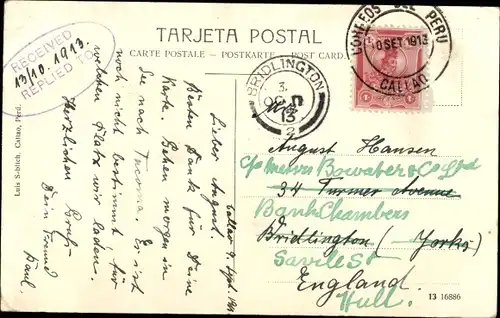 TARJETA POSTAL
CARTE POSTALE - POSTKARTE - POST CARD
RECEIVED
13/10 1913.
REPLIED TO
CORREOS DEL PERU
10 SET 1913
CALLAO
BRIDLINGTON
3.
13
2
Callao 9. Sept 1913
Lieber August.
Besten Dank für Deine
Karte. Gehen morgen in
See nach Tacoma. Es ist
noch nicht bestimmt, für
welchen Platz wir laden.
Herzlichen Gruß
Dein Freund
Paul.
August Hansen
c/o Messrs Bowater & Co Ltd
34 Turner Avenue
Bank Chambers
Bridlington (Yorks)
Savile St
England.
Hull.
13 16886
Callao, Perú.